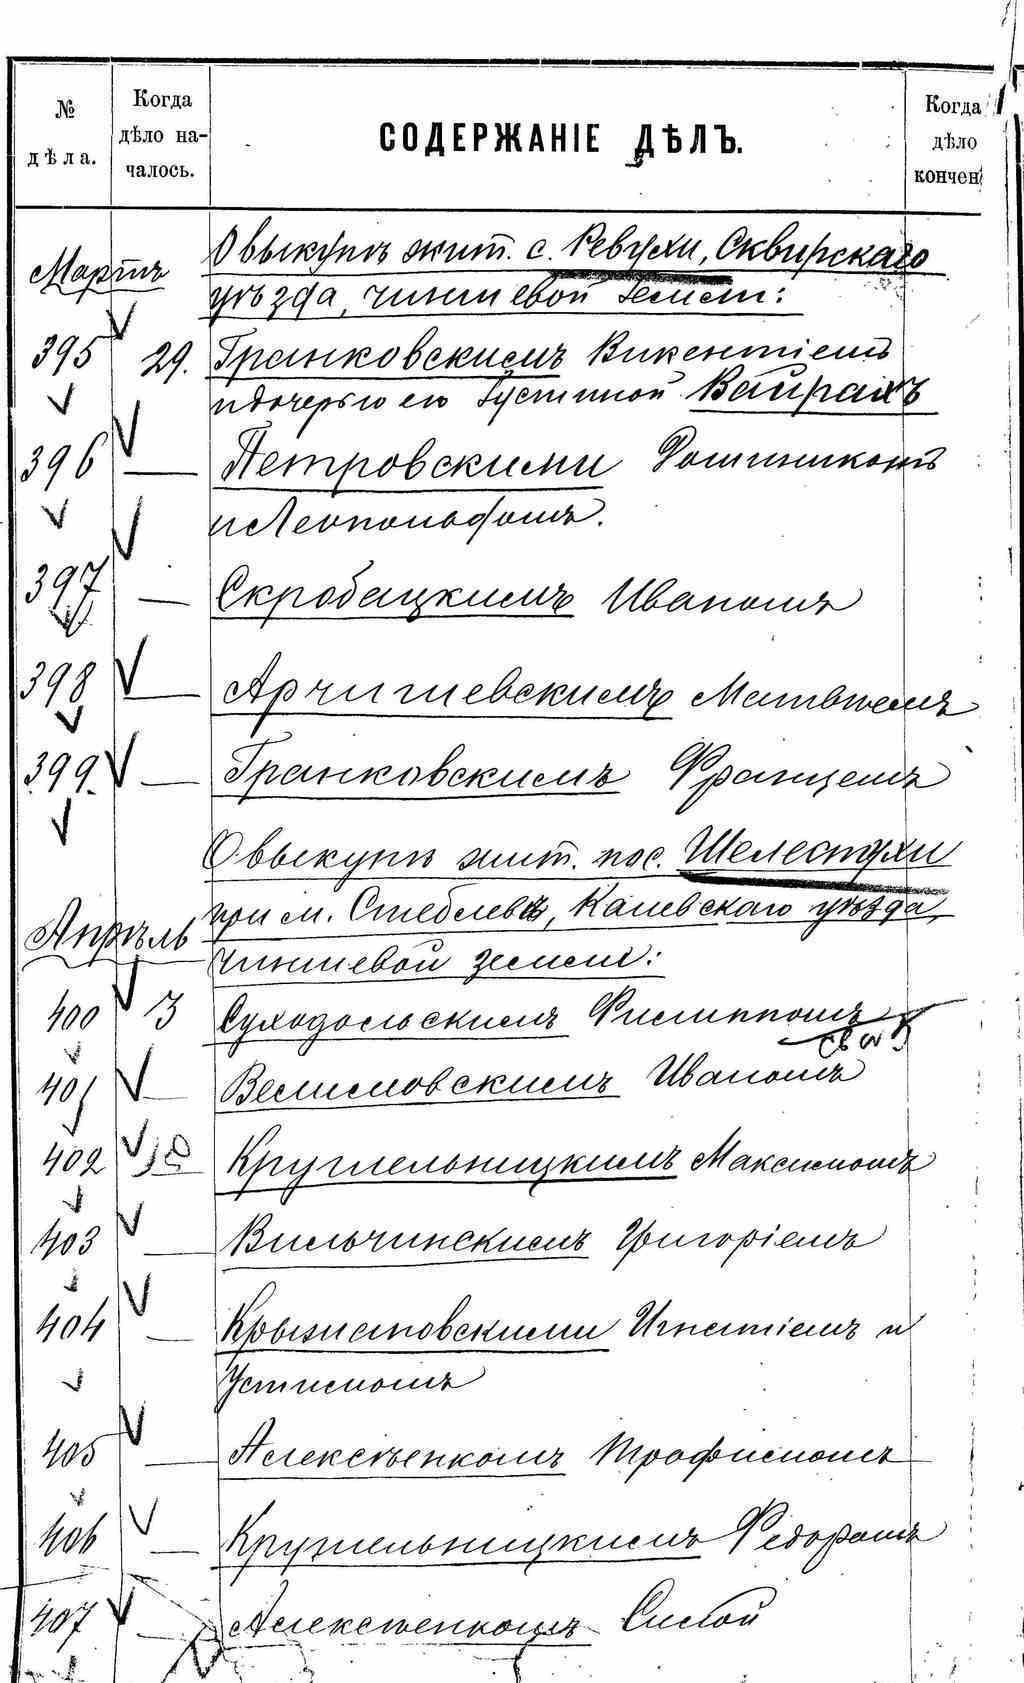 № дѣла.
Когда дѣло началось.
СОДЕРЖАНІЕ ДѢЛЪ.
Когда дѣло кончен
Мартъ
О выкупѣ жит. с. Ревухи, Сквирскаго
уѣзда, чиншевой земли:
395 29. Гранковскимъ Викентіемъ
и дочерью его Густиной Вайрахъ
396 — Петровскими Доминикомъ
и Леопольдомъ.
397 — Скробацкимъ Иваномъ
398 — Арчишевскимъ Матвѣемъ
399. — Гранковскимъ Францемъ
О выкупѣ жит. пос. Шелестухи
при м. Стеблевѣ, Каневскаго уѣзда,
Апрѣль
чиншевой земли:
400 3 Суходольскимъ Филиппомъ
401 — Велисловскимъ Иваномъ
402 Крушельницкимъ Максимомъ
403 — Вильчинскимъ Григоріемъ
404 — Крыжановскими Игнатіемъ и
Устиномъ
405 — Алексѣенкомъ Трофимомъ
406 — Крушельницкимъ Федоромъ
407 — Алексѣенкомъ Силой